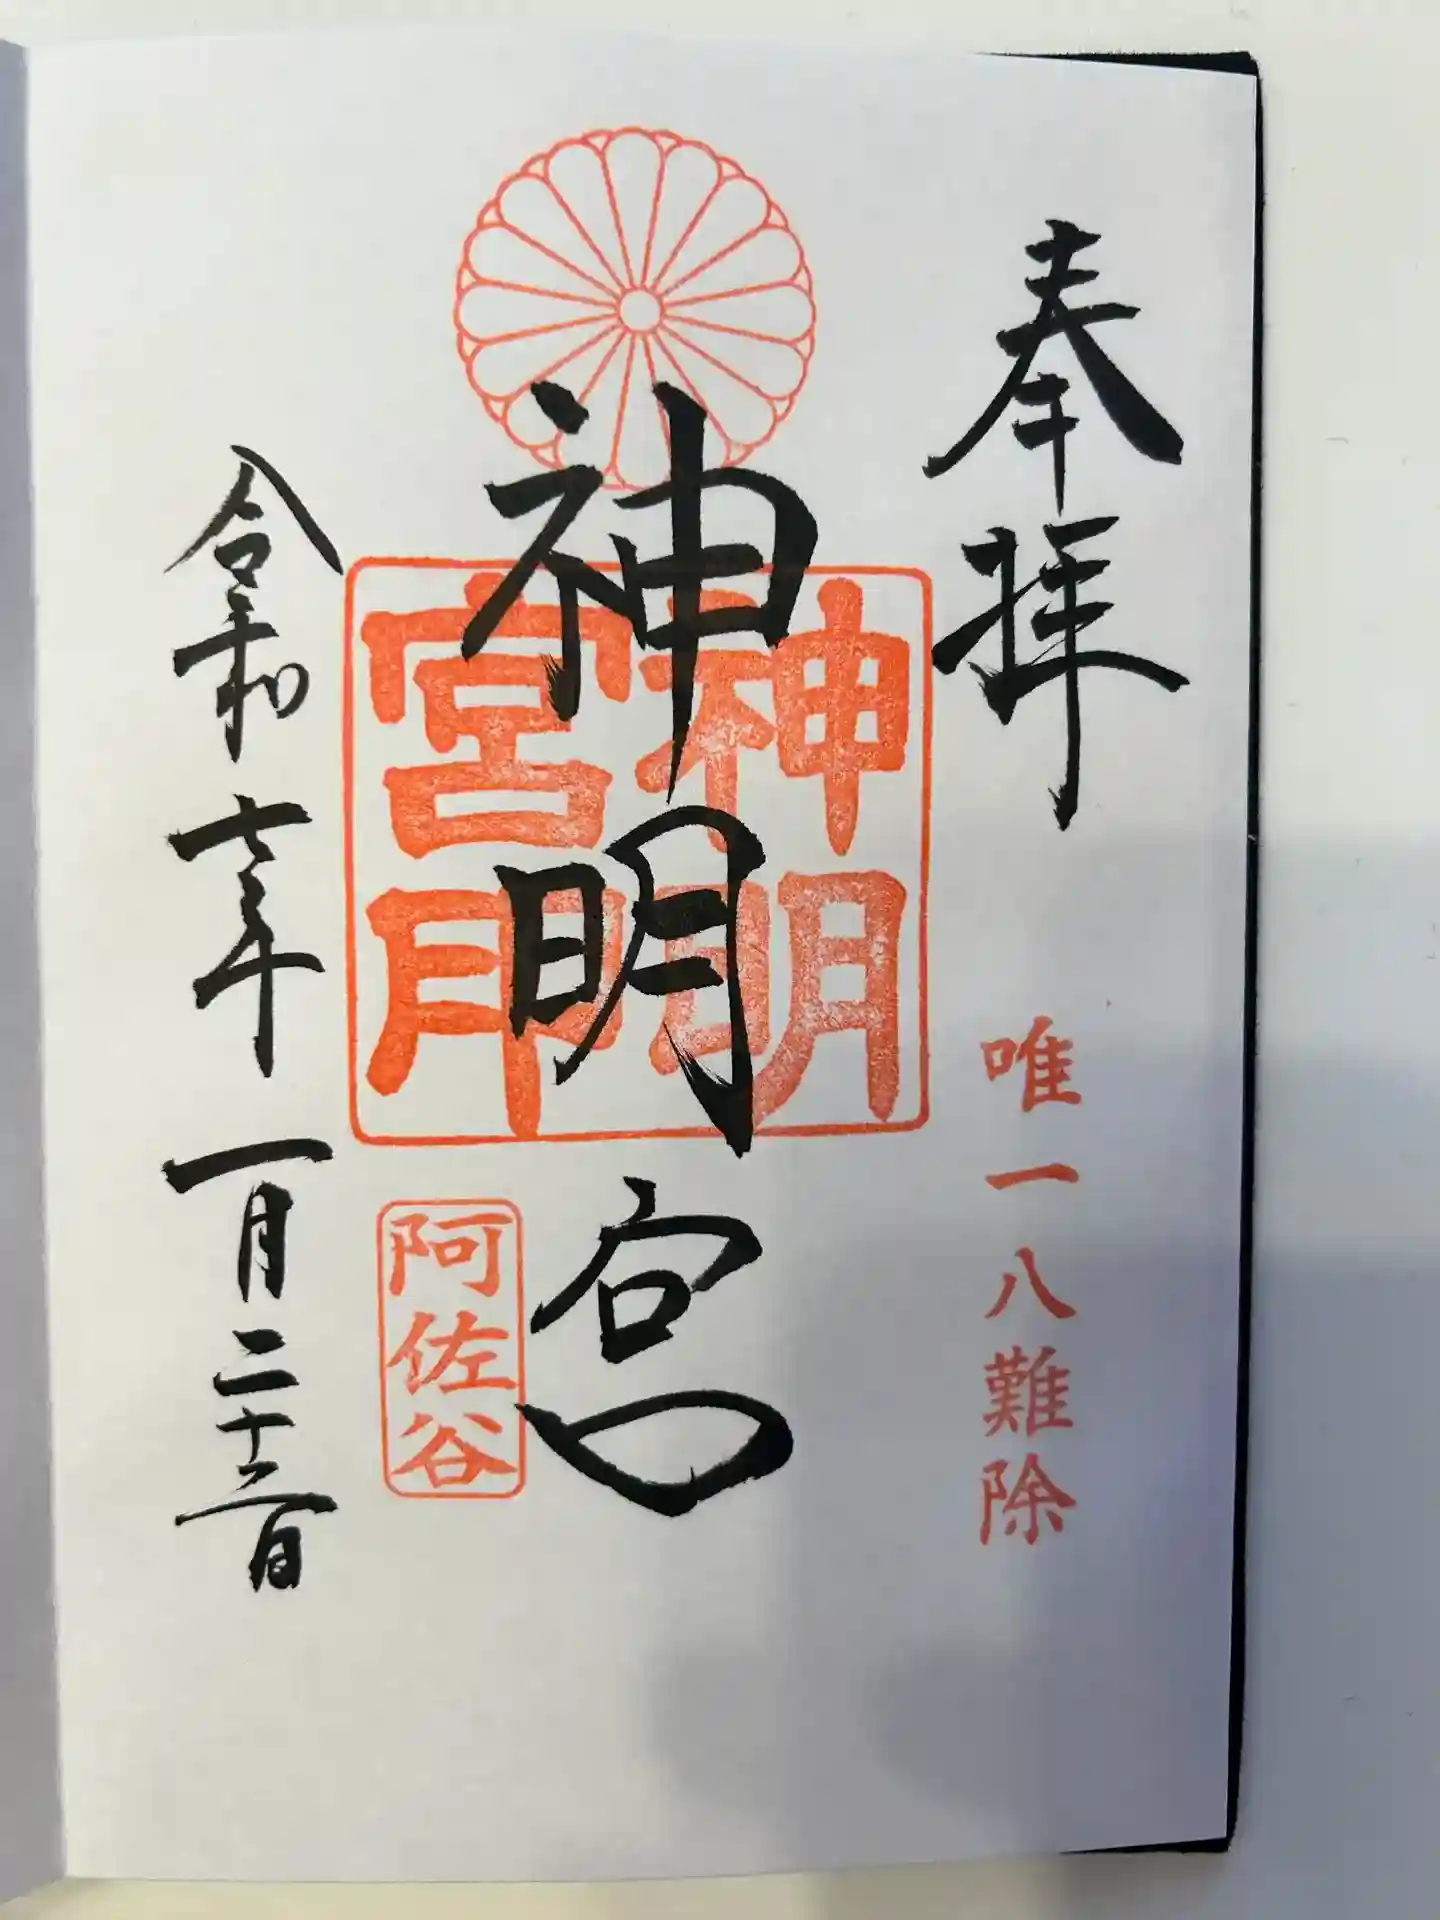 奉拝
唯一八難除
神明宮
神明
宮印
阿佐谷
令和七年一月二十二日